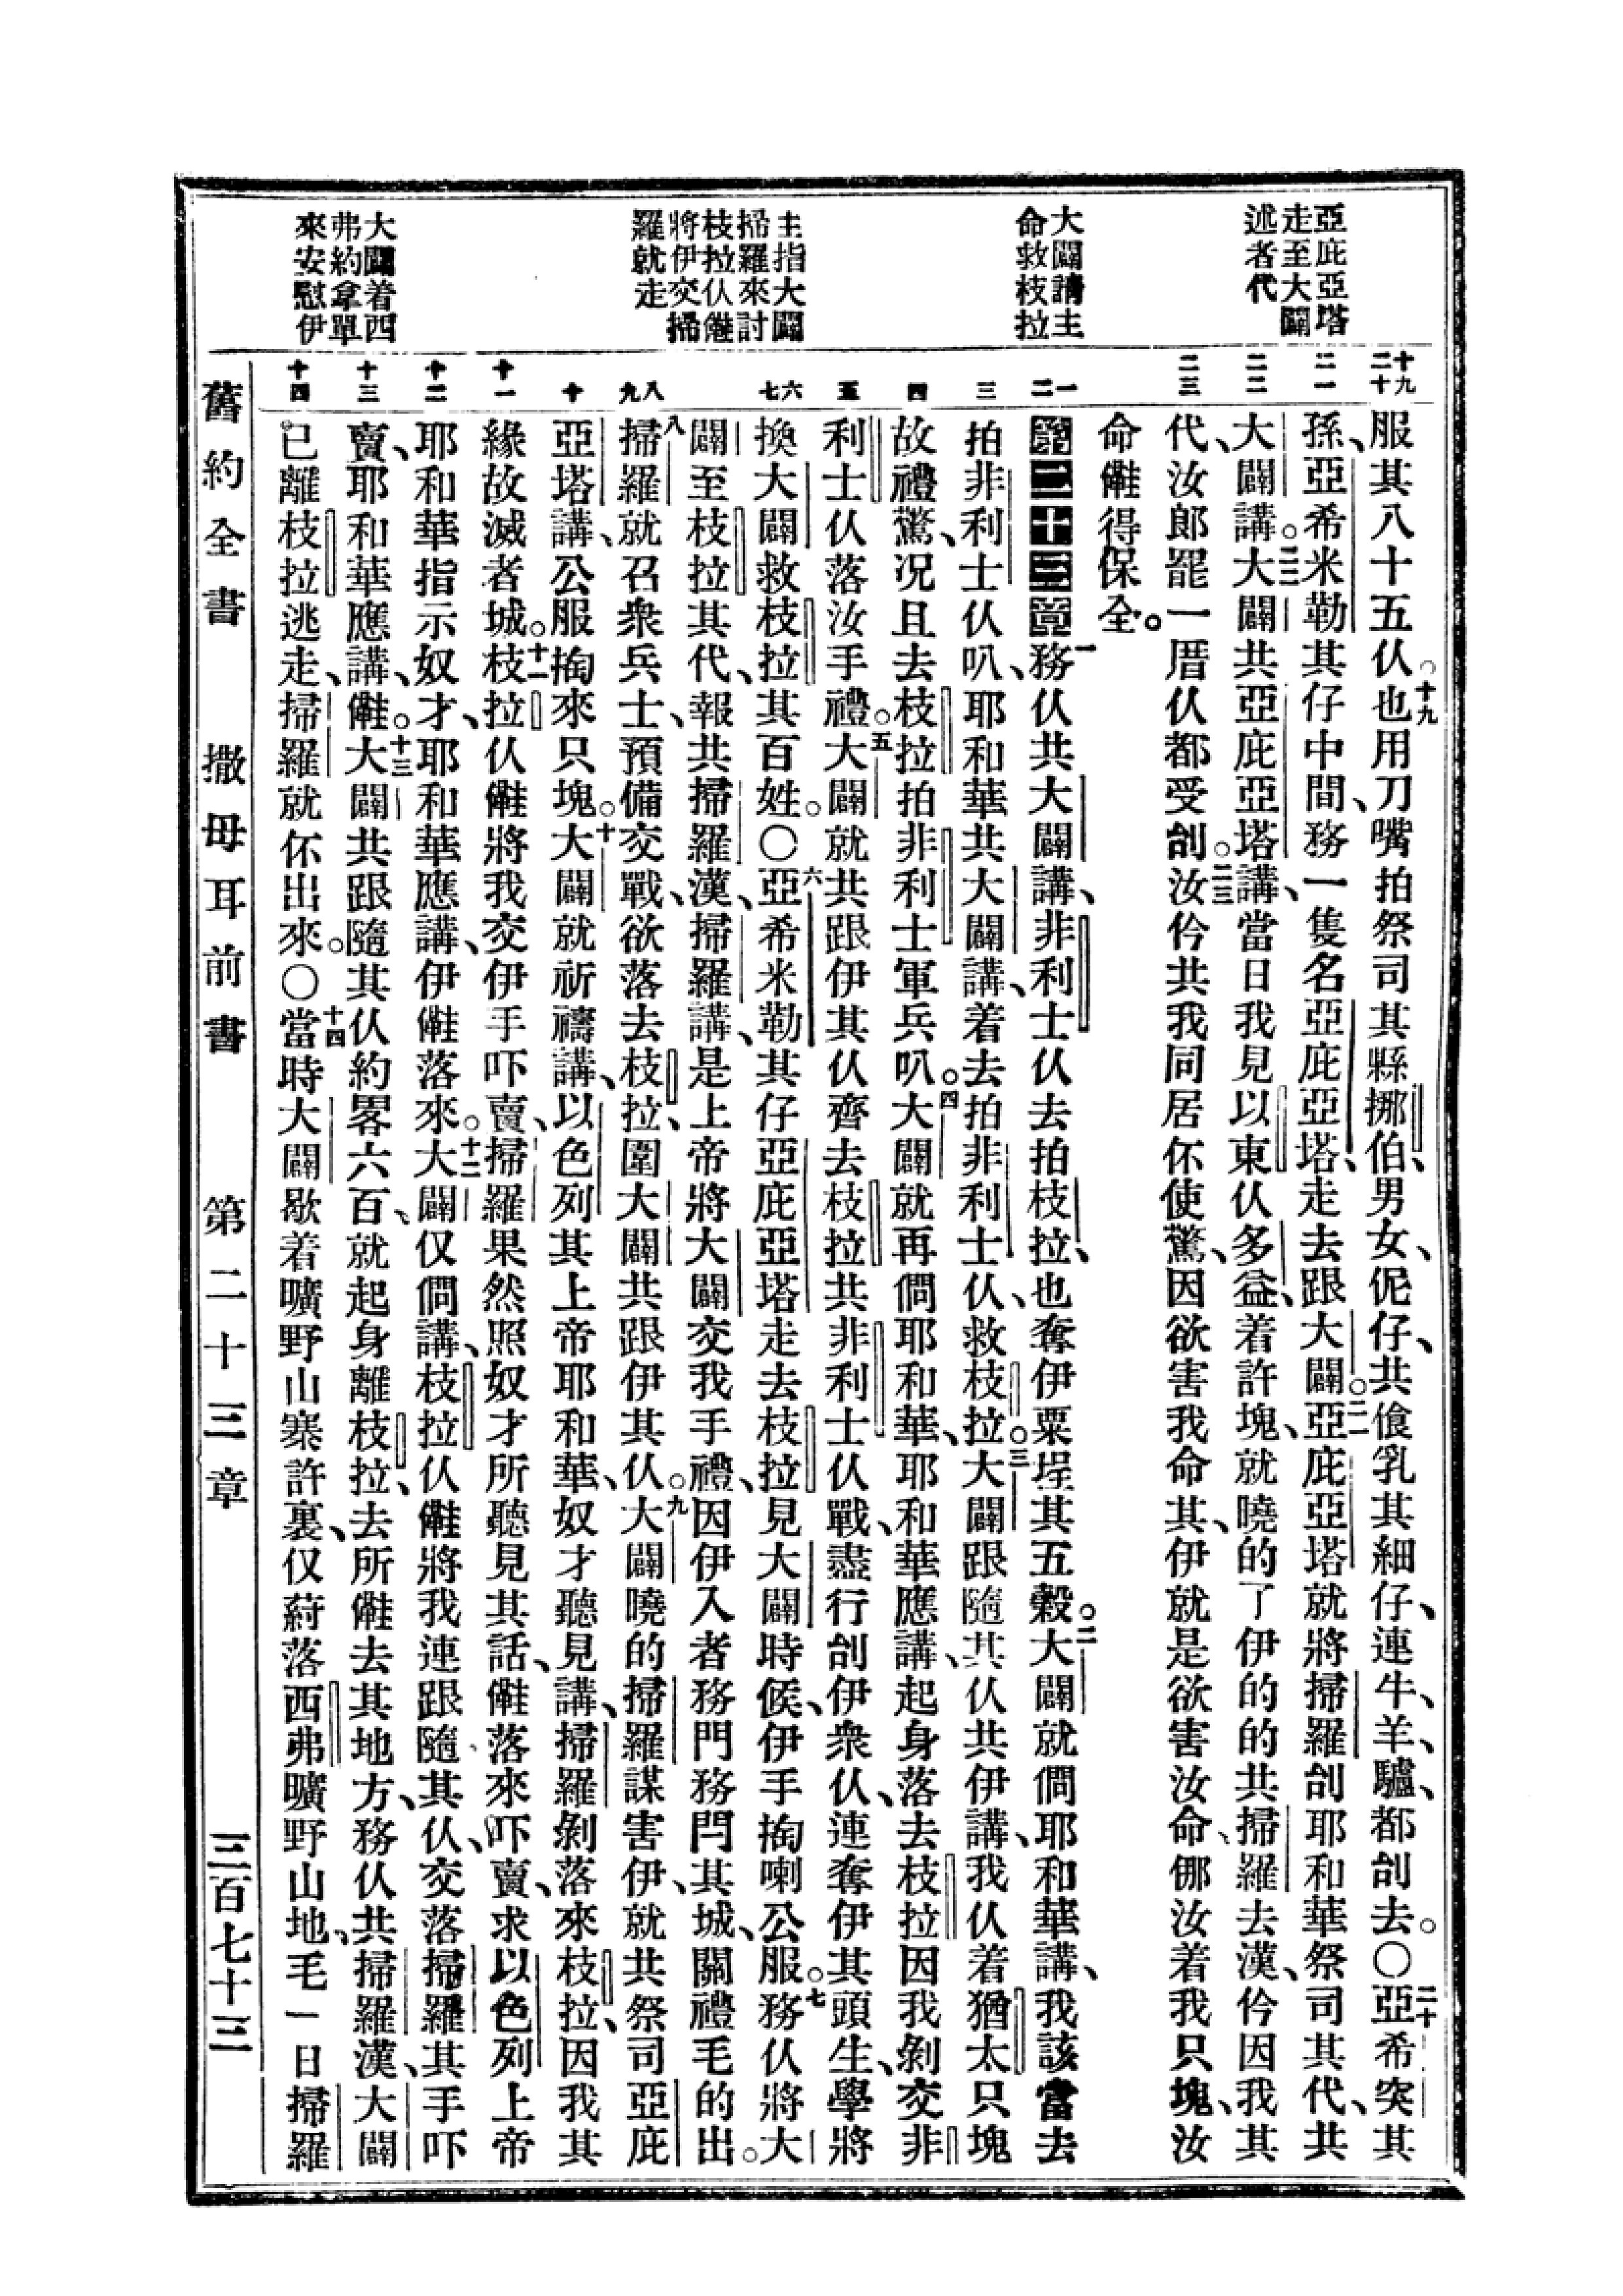 亞庇亞塔
走至大闢
述者代
大闢請主
命救枝拉
主指大闢
掃羅來討
枝拉仈𣍐
將伊交掃
羅就走
大闢着西
弗約拿單
來安慰伊
十九
二十
二一
二二
二三
一
二
三
四
五
六
七
八
九
十
十一
十二
十三
十四
服其八十五仈。十九也用刀嘴拍祭司其縣挪伯、男女、伲仔、共食乳其細仔、連牛、羊、驢、都刣去。〇二十亞希突其
孫、亞希米勒其仔中間、務一隻名亞庇亞塔、走去跟大闢。二一亞庇亞塔就將掃羅刣耶和華祭司其代、共
大闢講。二二大闢共亞庇亞塔講、當日我見以東仈多益、着許塊、就曉的了伊的的共掃羅去漢、伶因我其
代、汝郎罷一厝仈都受刣。二三汝伶共我同居伓使驚、因欲害我命其、伊就是欲害汝命、那汝着我只塊、汝
命𣍐得保全。
第二十三章 一務仈共大闢講、非利士仈去拍枝拉、也奪伊粟埕其五穀。二大闢就問耶和華講、我該當去
拍非利士仈叭、耶和華共大闢講、着去拍非利士仈、救枝拉。三大闢跟隨其仈共伊講、我仈着猶太只塊
故禮驚、况且去枝拉拍非利士軍兵叭。四大闢就再問耶和華、耶和華應講、起身落去枝拉、因我剝交非
利士仈落汝手禮。五大闢就共跟伊其仈齊去枝拉、共非利士仈戰、盡行刣伊衆仈、連奪伊其頭生、學將
換大闢救枝拉其百姓。〇六亞希米勒其仔亞庇亞塔走去枝拉見大闢時候、伊手掏喇公服。七務仈將大
闢至枝拉其代、報共掃羅漢、掃羅講、是上帝將大闢交我手禮、因伊入者務門務閂其城、關禮毛的出。
八掃羅就召衆兵士、預備交戰、欲落去枝拉、圍大闢共跟伊其仈。九大闢曉的掃羅謀害伊、就共祭司亞庇
亞塔講、公服掏來只塊。十大闢就祈禱講、以色列其上帝耶和華、奴才聽見講、掃羅剝落來枝拉、因我其
緣故滅者城。十一枝拉仈𣍐將我交伊手吓賣、掃羅果然照奴才所聽見其話、𣍐落來吓賣、求以色列上帝
耶和華指示奴才、耶和華應講、伊𣍐落來。十二大闢仅問講、枝拉仈𣍐將我連跟隨其仈、交落掃羅其手吓
賣、耶和華應講、𣍐。十三大闢共跟隨其仈約畧六百、就起身離枝拉、去所𣍐去其地方、務仈共掃羅漢、大闢
已離枝拉逃走、掃羅就伓出來。〇十四當時大闢歇着曠野山寨許裏、仅蒔落西弗曠野山地、毛一日掃羅
舊約全書 撒母耳前書 第二十三章 三百七十三